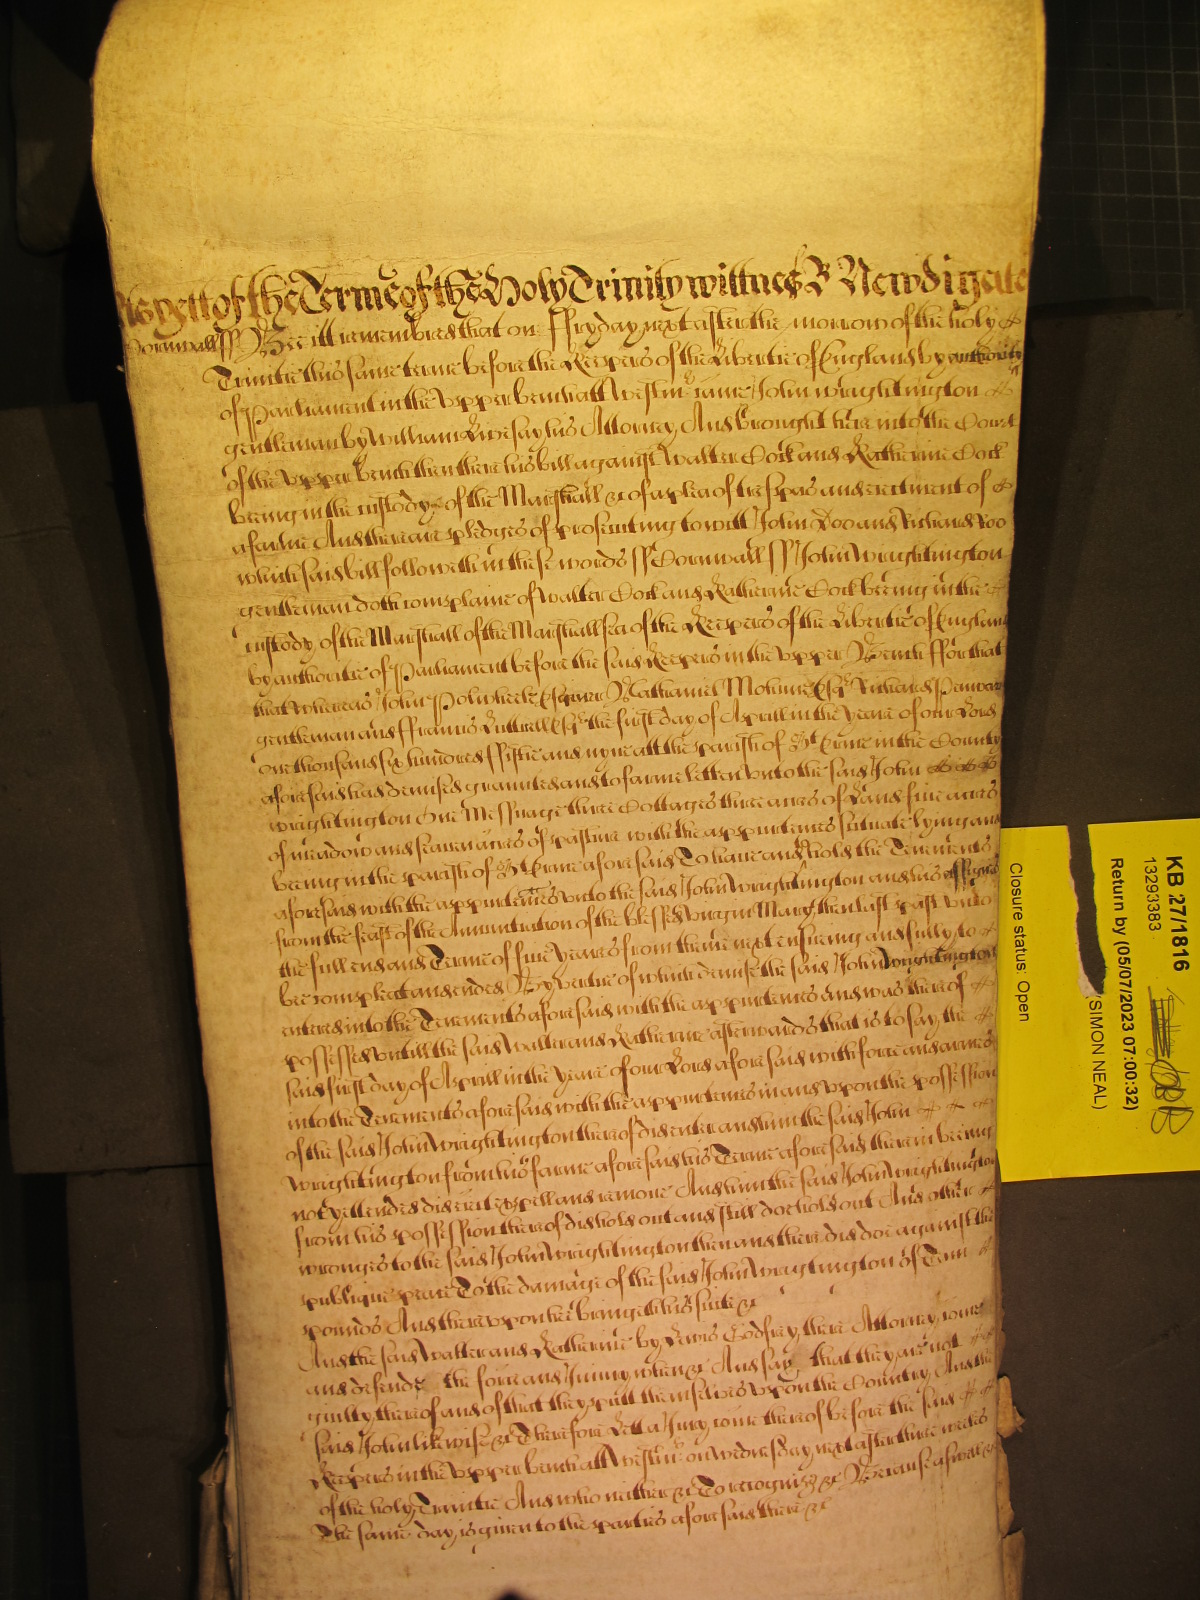 As yett of the Terme of the Holy Trinity wittnes R Newdigate
Cornwall ss Bee itt remembred that on ffryday next after the morrow of the holy
Trinitie this same terme before the Keepers of the Libertie of England by authority
of Parliament in the vpper bench att Westm͂ came John Wrightington
gentleman by William Livesay his Attorney And brought here into the Court
of the vpper bench then there his bill against Walter Cock and Katherine Cock
beeing in the custody of the Marshall &c of a plea of trespas and eectment of
a farme And there are pledges of prosecuting to witt John Doo and Richard Roo
which said bill followeth in these words ss Cornwall ss John Wrightington
gentleman doth complaine of Walter Cock and Katherine Cock beeing in the
custody of the Marshall of the Marshallsea of the Keepers of the Libertie of England
by authoritie of Parliament before the said Keepers in the vpper Bench ffor that
that whereas John Polwheele Esquier Nathaniel Mohune Esqr Richard
gentleman and ffrancis Luttrell Esqr the first day of Aprill in the yeare of our Lord
one thousand six hundred ffiftie and nyne att the parish of St Erme in the County
aforesaid had demised graunted and to farme letten vnto the said John
Wrightington One Messuage three Cottages three acres of Land five acres
of meadow and seaven acres of pasture with the appurtenncs situate lying and
beeing in the parish of St Erme aforesaid To have and hold the Tenements
aforesaid with the appurtenncs vnto the said John Wrightington and his assignes
from the feast of the Annuntiation of the blessed virgin Mary then last past vnto
the full end and Terme of five yeares from thence next ensueing and fully to
bee compleat and ended By vertue of which demise the said John Wrightington
entered into the Tenements aforesaid with the appurtenncs And was thereof
possessed vntill the said Walter and Katherine afterwards that is to say the
said first day of Aprill in the yeare of our Lord aforesaid with force and armes
into the Tenements aforesaid with the appurtenncs in and vpon the possession
of the said John Wrightington thereof did enter and him the said John
Wrightington from his farme aforesaid his Terme aforesaid therein beeing
not yett ended did eiect expell and remove And him the said John Wrightington
from his possession thereof did hold out and still doe hold out And other
wronges to the said John Wrightington then and there did doe against the
publique peace To the damage of the said John Wrightington of Tenn
pounds And therevpon hee bringeth his suite &c
And the said Walter and Katherine by Lewis Godfrey there Attorney come
and defend the force and Iniury when &c And say that they are not
guilty thereof and of that they putt themselves vpon the Country And the
said John likewise &c Therefore Lett a Jury come thereof before the said
Keepers in the vpper bench att Westm͂ on Wednesday next after three weekes
of the holy Trinitie And who neither &c To recogniz &c Because aswell &c
The same day is given to the parties aforesaid there &c
KB 27/1816
13293383
Return by (05/07/2023 07:00:32)
(SIMON NEAL)
Closure status: Open